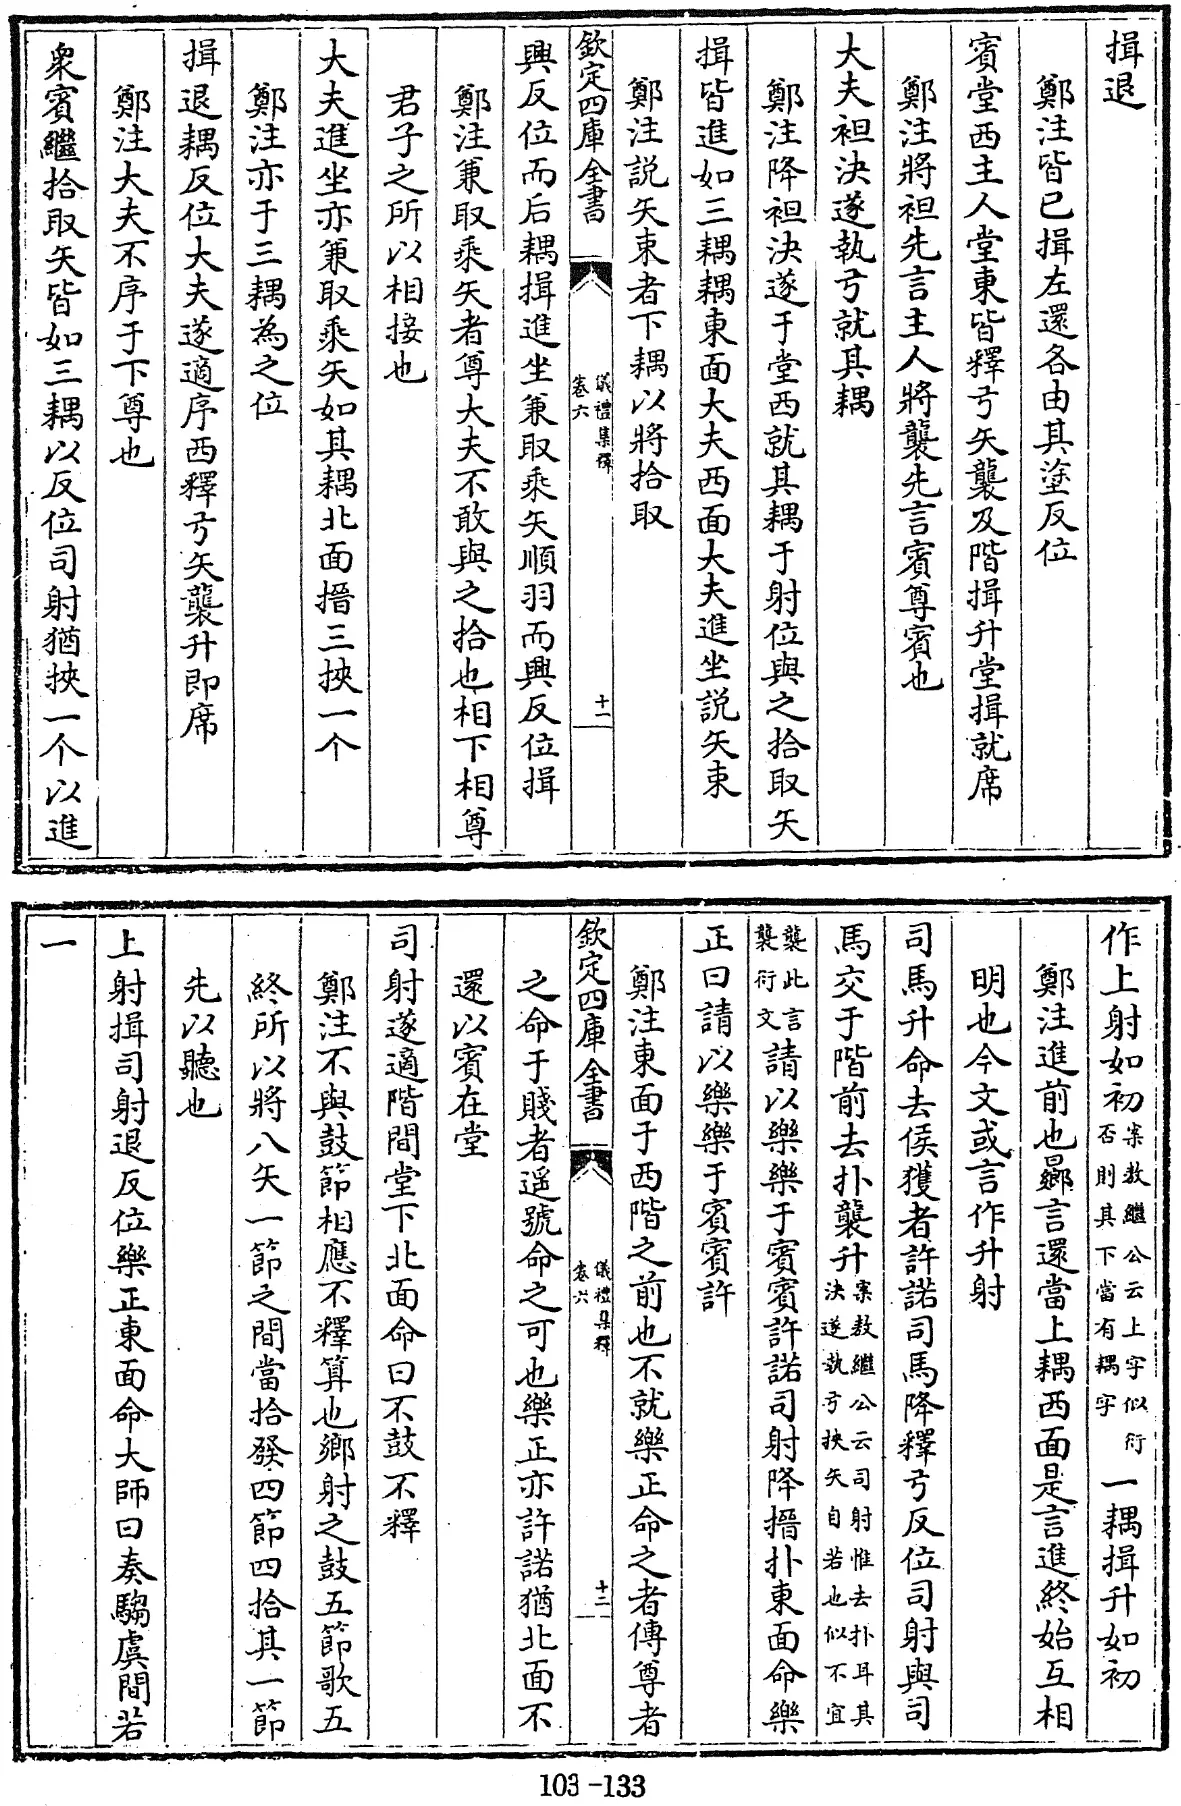 揖退
鄭注皆已揖左還各由其塗反位
賓堂西主人堂東皆釋弓矢襲及階揖升堂揖就席
鄭注將袒先言主人將襲先言賓尊賓也
大夫袒決遂執弓就其耦
鄭注降袒決遂于堂西就其耦于射位與之拾取矢
揖皆進如三耦耦東面大夫西面大夫進坐説矢束
鄭注説矢束者下耦以將拾取
欽定四庫全書
儀禮集釋
卷六
十一
興反位而后耦揖進坐兼取乘矢順羽而興反位揖
鄭注兼取乘矢者尊大夫不敢與之拾也相下相尊
君子之所以相接也
大夫進坐亦兼取乘矢如其耦北面搢三挾一个
鄭注亦于三耦為之位
揖退耦反位大夫遂適序西釋弓矢襲升即席
鄭注大夫不序于下尊也
衆賓繼拾取矢皆如三耦以反位司射猶挾一个以進
作上射如初案敖繼公云上字似衍否則其下當有耦字一耦揖升如初
鄭注進前也曏言還當上耦西面是言進終始互相
明也今文或言作升射
司馬升命去侯獲者許諾司馬降釋弓反位司射與司
馬交于階前去扑襲升案敖繼公云司射惟去扑耳其決遂執弓挾矢自若也似不宜
襲此言襲衍文請以樂樂于賓賓許諾司射降搢扑東面命樂
正曰請以樂樂于賓賓許
鄭注東面于西階之前也不就樂正命之者傳尊者
欽定四庫全書
儀禮集釋
卷六
十二
之命于賤者遥號命之可也樂正亦許諾猶北面不
還以賓在堂
司射遂適階間堂下北面命曰不鼓不釋
鄭注不與鼓節相應不釋算也鄉射之鼓五節歌五
終所以將八矢一節之間當拾發四節四拾其一節
先以聽也
上射揖司射退反位樂正東面命大師曰奏騶虞間若
一
103-133